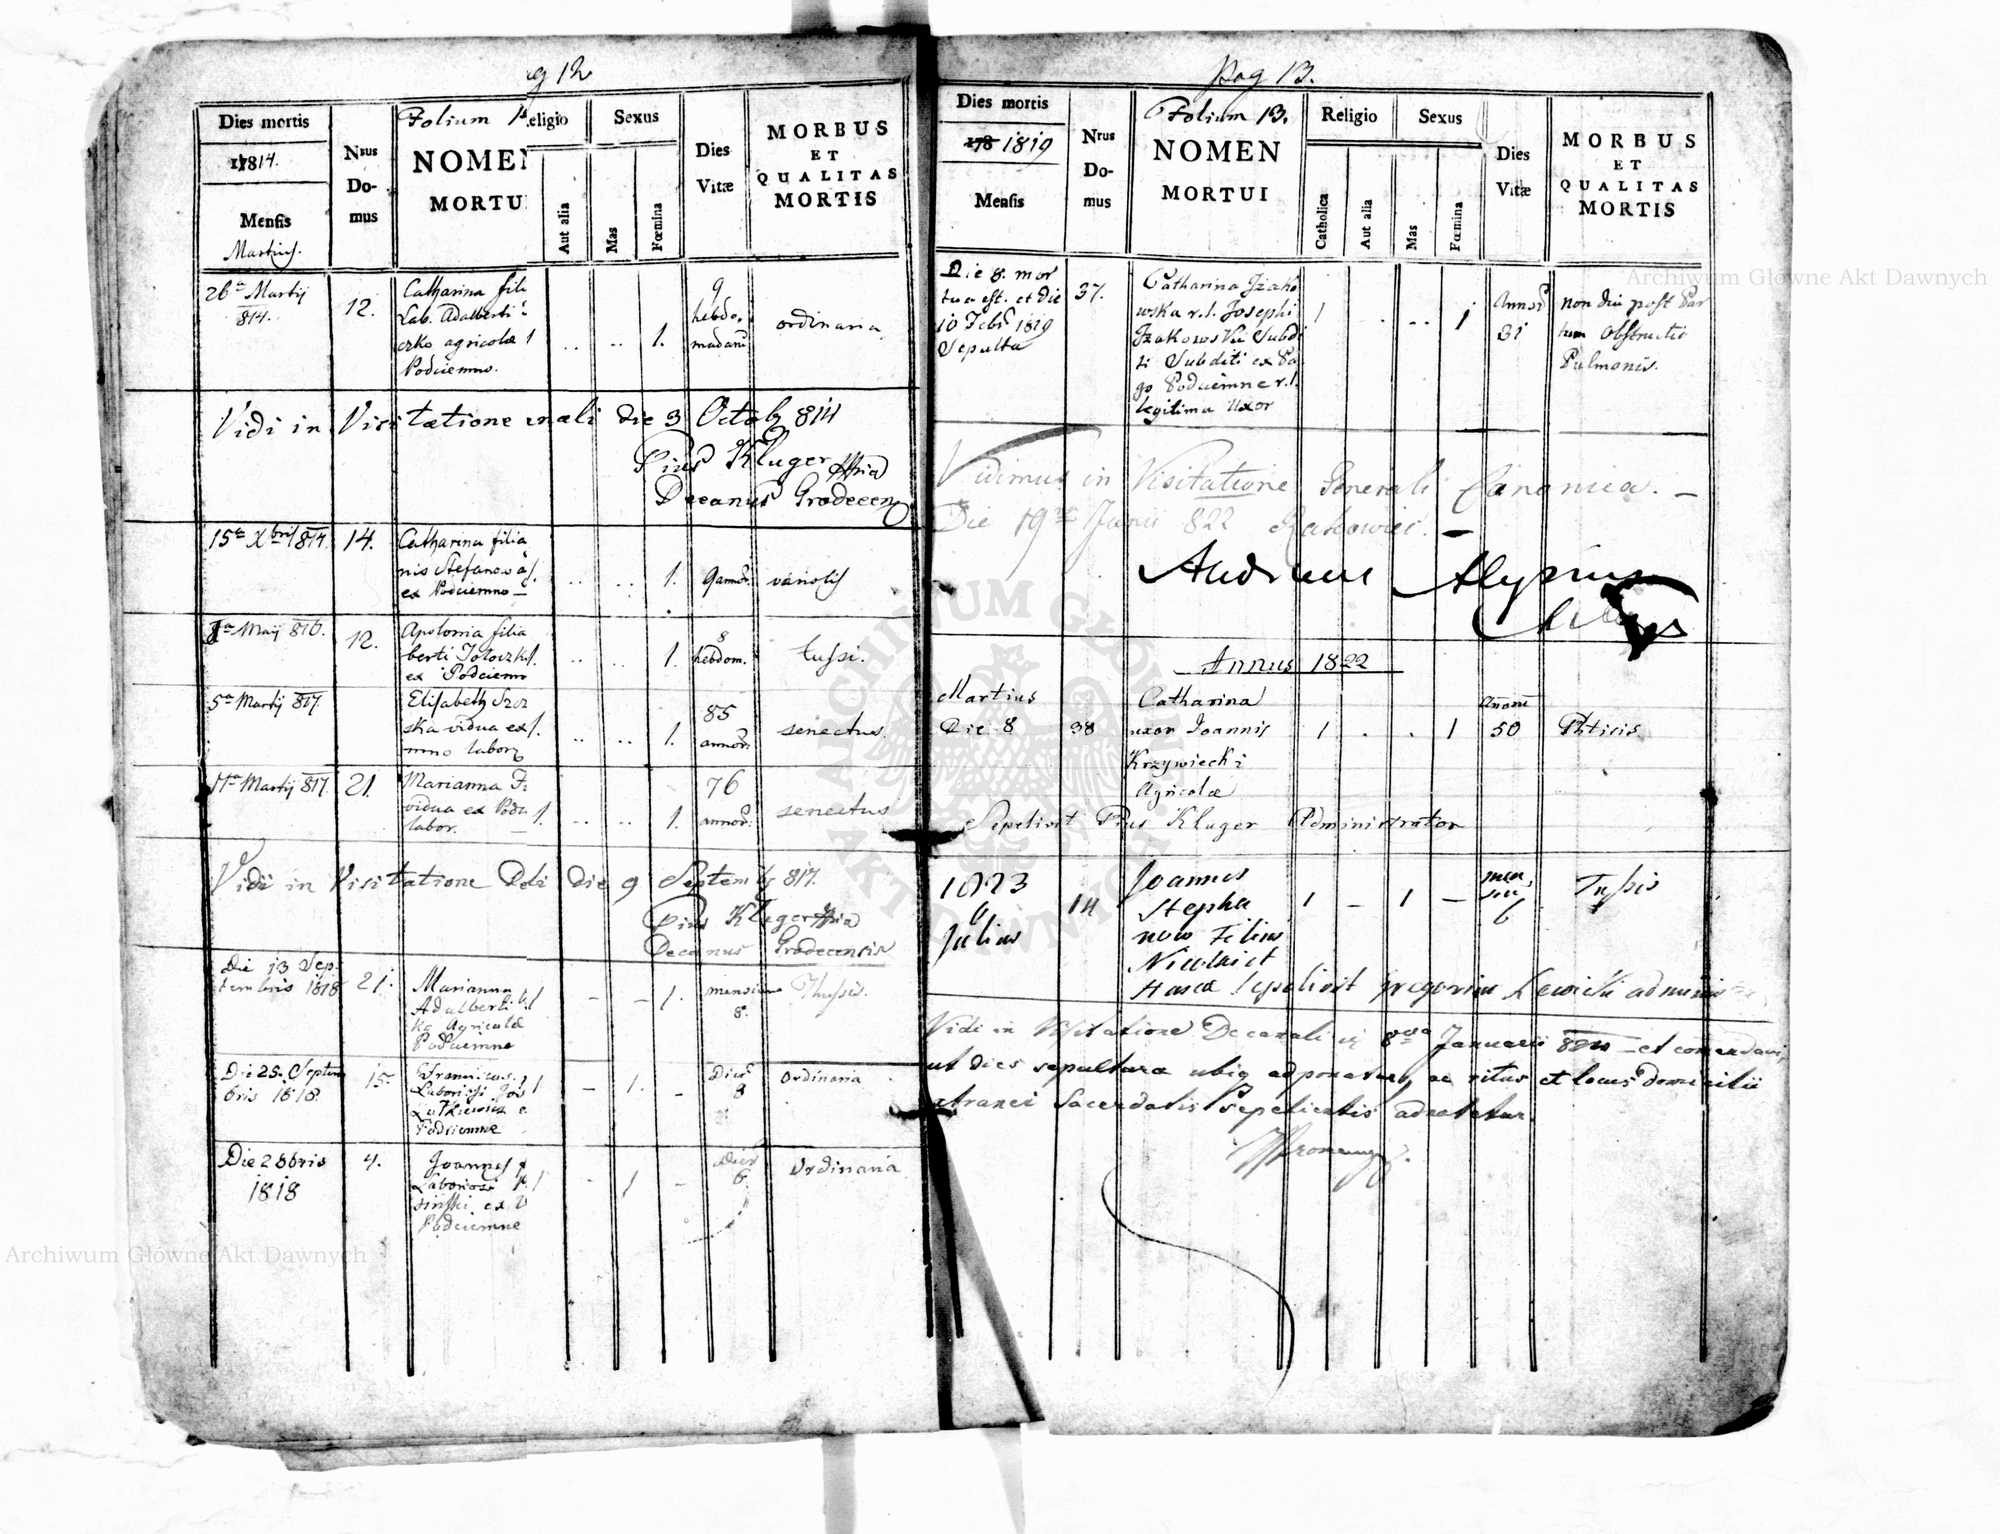 g 12
Dies mortis
1814.
Mensis
Martius.
Nrus
Do-
mus
Folium 1
NOMEN
MORTU
eligio
Aut alia
Sexus
Mas
Fœmina
Dies
Vitæ
MORBUS
ET
QUALITAS
MORTIS
26a Martij
814.
12.
Catharina fili
Lab. Adalberti
czko agricolæ 1
Podciemno.
.. .. 1.
9
hebdo.
madarū
ordinaria
Vidi in Visitatione die 3 Octobr 814
Pius Kluger
Decanus Grodecen
15ta Xbris 814.
14.
Catharina filia
nis Stefanow 1.
ex Podciemno
.. .. 1.
9 annor.
variolis
Maij 816.
12.
Apolonia filia
berti Tołoczk 1.
ex Podciemn
.. .. 1.
8
hebdom.
tussi.
5a Martij 817.
Elisabeth Szcz
ska vidua ex 1.
mno labor
.. .. 1.
85
annor.
senectus.
Martij 817.
21.
Marianna
vidua ex Podc 1.
labor.
.. .. 1.
76
annor.
senectus
Vidi in Visitatione die 9 Septembr 817.
Pius Kluger
Decanus Grodecensis
Die 13 Sep-
tembris 1818
21.
Marianna
Adalberti 1
ko Agricolæ
Podciemne
– – 1.
mensium
8.
Thussis.
Die 25. Septem
bris 1818.
15.
Franciscus
Laboriosi Jos 1
Lutkiewicz
Podciemne
– 1. –
Dies
8
Ordinaria
Die 2 8bris
1818
4.
Joannes
Laboriosi 1
sinski ex
Podciemne
- 1 -
Dies
6.
Ordinaria
Pag 13.
Dies mortis
178 1819
Mensis
Nrus
Do-
mus
Folium 13.
NOMEN
MORTUI
Religio
Catholica
Aut alia
Sexus
Mas
Fœmina
Dies
Vitæ
MORBUS
ET
QUALITAS
MORTIS
Die 8. mor
tua est. et die
10 Febr 1819
Sepulta
37.
Catharina Jzako
wska r.l. Josephi
Jzakowski Subdi
ti Subditi ex Pa
go Podciemne r.l.
legitima Uxor
1 . .. 1
Annor
31
non diu post Par
tum Obstructio
Pulmonis.
Vidimus in Visitatione Generali Canonica. –
Die 19na Junii 822 Rakowiec. –
Andreas Alypius
Annus 1822
Martius
Die 8
38
Catharina
uxor Joannis
Krzywiecki
Agricolæ
1 . . 1
Annorū
50
Phtisis
Sepelivit Pius Kluger Administrator
1823
6
Julius
14
Joannes
Stepha
now Filius
Nicolai et
1 – 1 –
men
siu
6
Tussis
Sepelivit Gregorius Lewicki administ
Vidi in Visitatione Decanali 8va Januarii et comendavi
ut dies sepulturæ ubiq adponatur, ac ritus et locus domicilii
extranei Sacerdotis Sepelientis adnotetur.
Archiwum Główne Akt Dawnych
Archiwum Główne Akt Dawnych
ARCHIWUM GŁÓWNE
AKT DAWNYCH